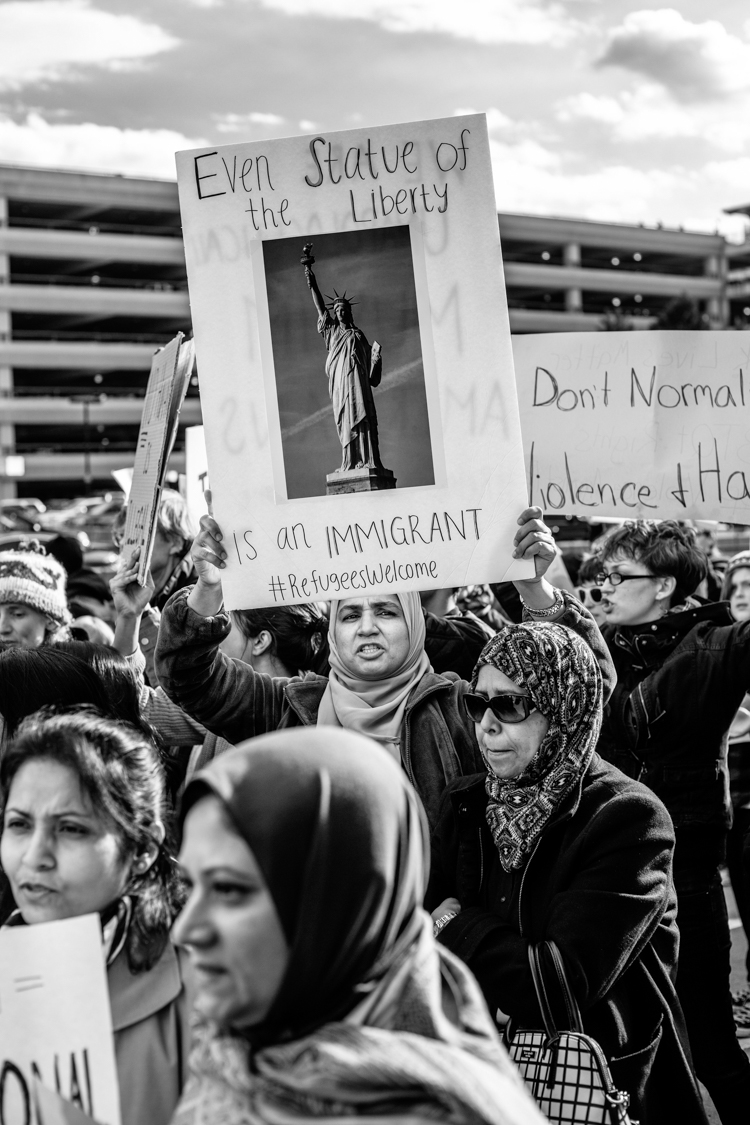 Even Statue of
the Liberty
is an IMMIGRANT
#RefugeesWelcome
Don't Normal
Violence & Ha
ONAL